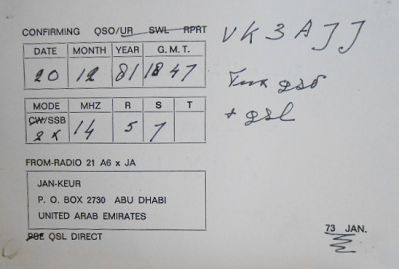 CONFIRMING QSO/UR SWL RPRT
VK3AJJ
DATE MONTH YEAR G. M. T.
20 12 81 18 47
Tnx qso
+ qsl
MODE MHZ R S T
CW/SSB 2X 14 5 7
FROM-RADIO 21 A6 x JA
JAN-KEUR
P. O. BOX 2730 ABU DHABI
UNITED ARAB EMIRATES
PSE QSL DIRECT
73 JAN.